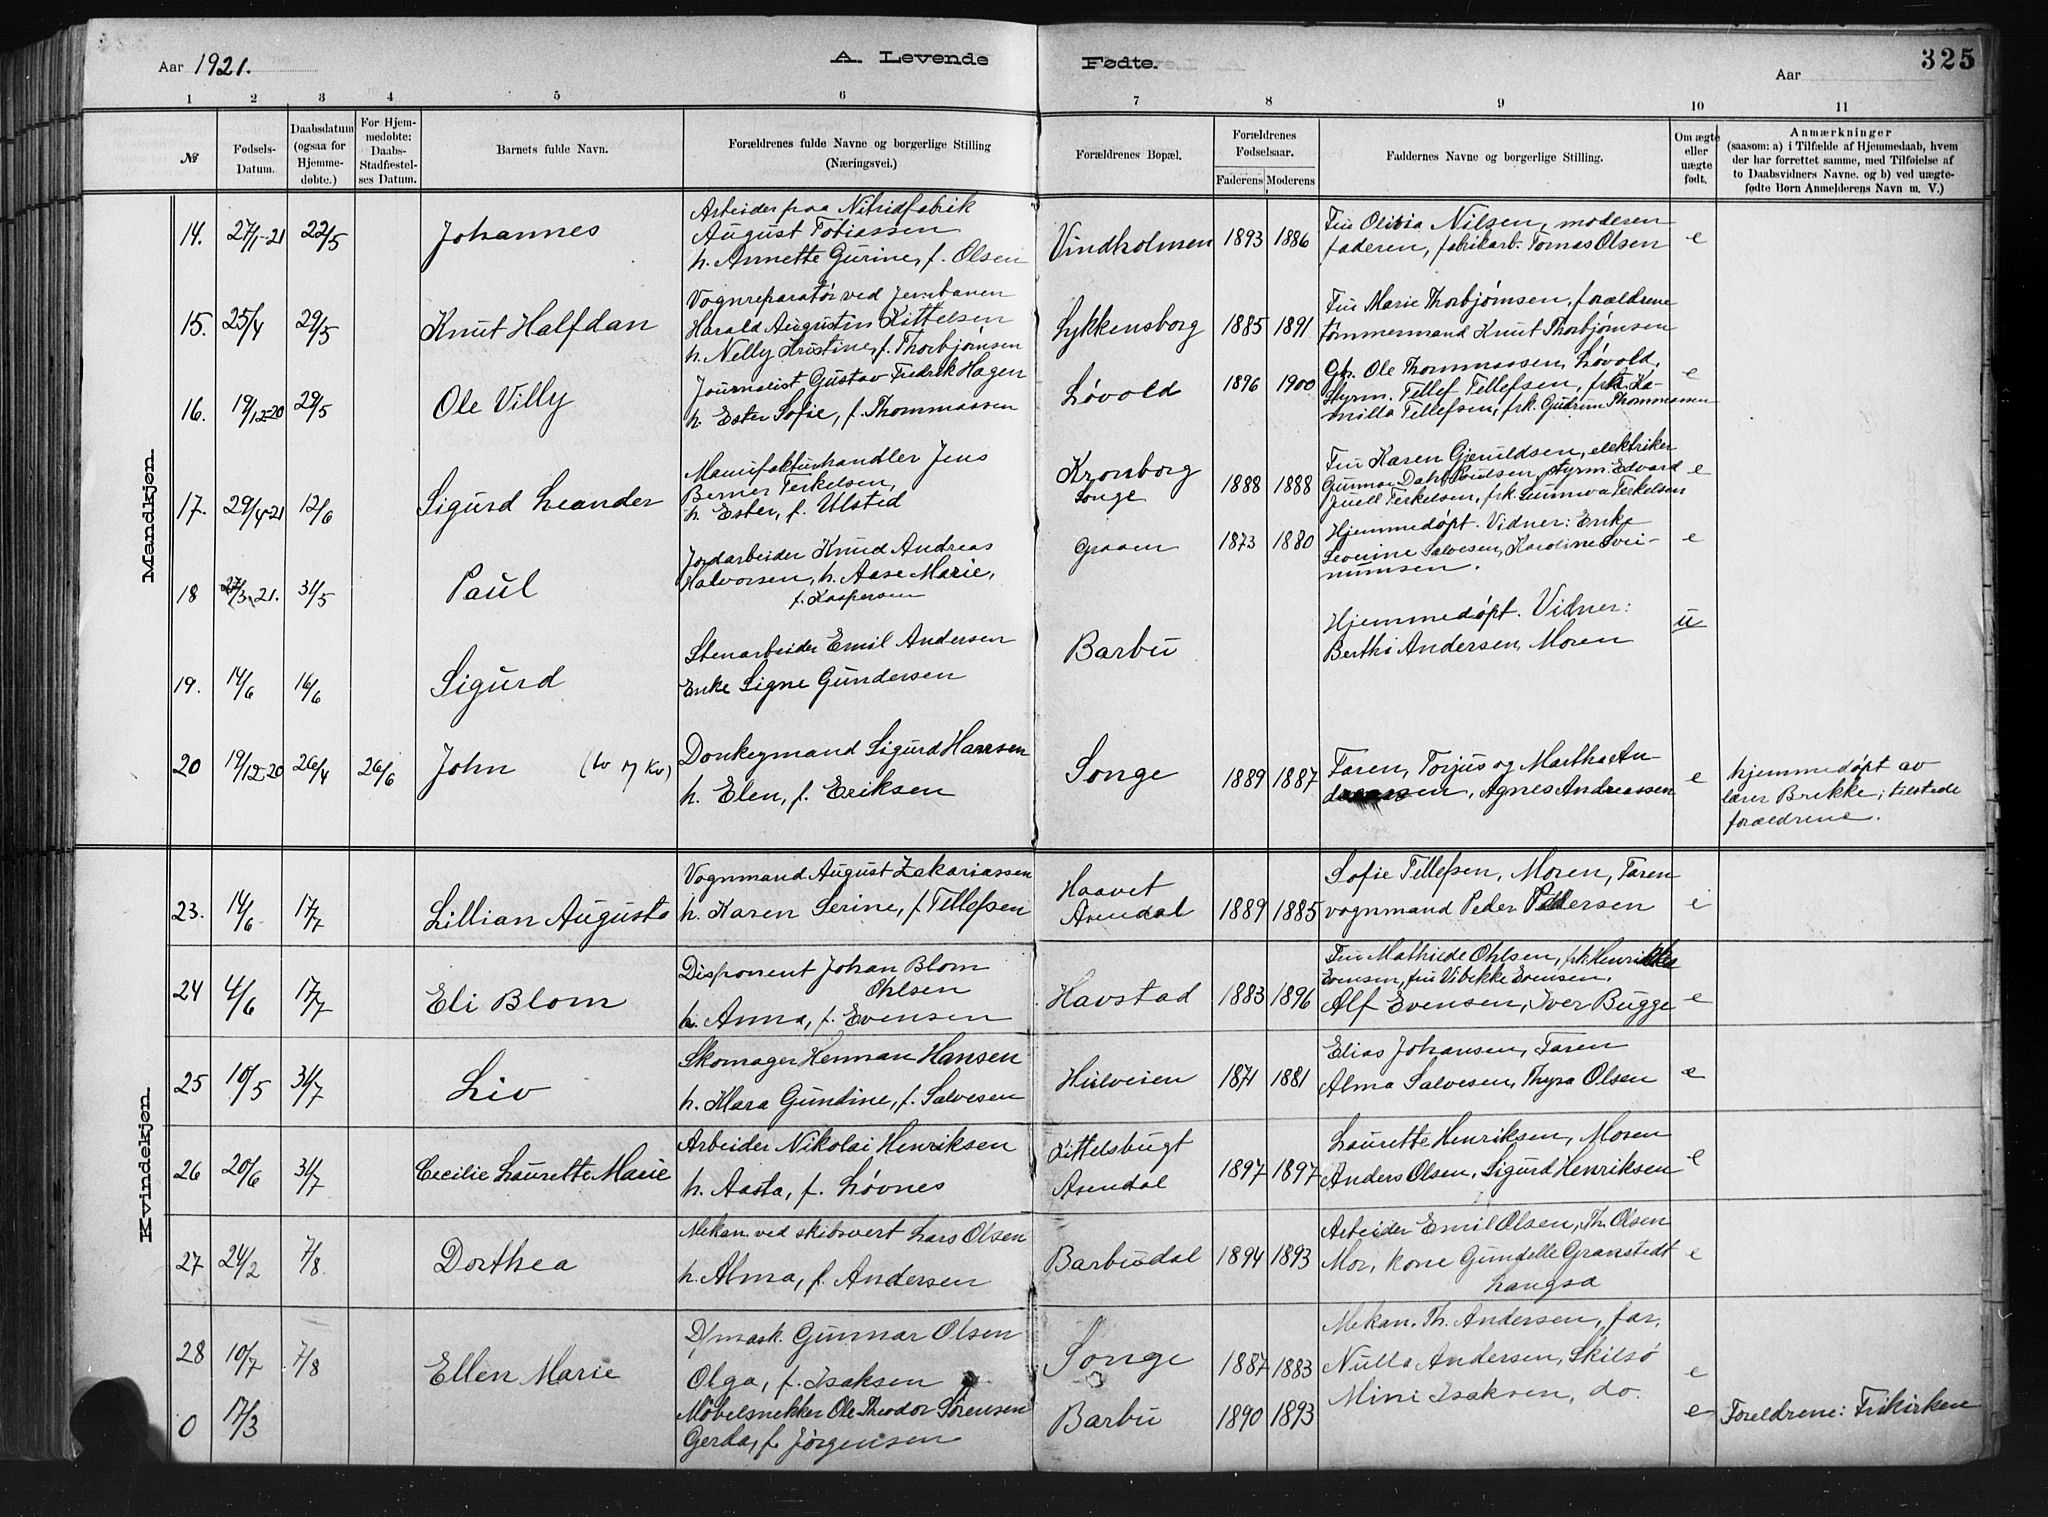 Aar 1921.
A. Levende Fødte.
Aar
325
1 2 3 4 5 6 7 8 9 10 11
№
Fødsels-Datum.
Daabsdatum (ogsaa for Hjemme-døbte.)
For Hjem-medøbte: Daabs-Stadfæstel-ses Datum.
Barnets fulde Navn.
Forældrenes fulde Navne og borgerlige Stilling (Næringsvei.)
Forældrenes Bopæl.
Forældrenes Fødselsaar.
Faderens Moderens
Faddernes Navne og borgerlige Stilling.
Om ægte eller uægte født.
Anmærkninger
(saasom: a) i Tilfælde af Hjemmedaab, hvem
der har forrettet samme, med Tilføielse af
to Daabsvidners Navne. og b) ved uægte-
fødte Børn Anmelderens Navn m. V.)
Mandkjøn.
14. 27/1-21 22/5 Johannes
Arbeider paa Nitridfabrik
August Tobiassen
h. Annette Gurine, f. Olsen
Vindholmen 1893 1886
Fru Olivia Nilsen, moderen
faderen, fabrikarb. Tomas Olsen
e
15. 25/4 29/5 Knut Halfdan
Vognreparatør ved Jernbanen
Harald Augustin Kittelsen
h. Nelly Kristine, f. Thorbjørnsen
Lykkensborg 1885 1891
Fru Marie Thorbjørnsen, forældrene
tømmermand Knut Thorbjørnsen
16. 19/12-20 29/5 Ole Villy
Journalist Gustav Fredrik Hagen
h. Ester Sofie, f. Thommassen
Løvold 1896 1900
Gb. Ole Thommassen, Løvold,
Styrm. Tellef Tellefsen, frk. Ka-
milla Tellefsen, frk. Gudrun Thommassen
e
17. 29/4-21 12/6 Sigurd Leander
Manufakturhandler Jens
Berner Terkelsen,
h. Ester, f. Ulsted
Kronborg
Songe
1888 1888
Fru Karen Gjeruldsen, elektriker
Gunnar Dahl Poulsen, styrm. Edvard
Juell Terkelsen, frk. Gunnva Terkelsen
e
18 27/3-21. 31/5 Paul
Jordarbeider Knud Andreas
Halvorsen, h. Aase Marie,
f. Kaspersen
Graaen 1873 1880
Hjemmedøpt. Vidner: Enke
Severine Salvesen, Karoline Svei-
numsen.
e
19. 14/6 16/6 Sigurd
Stenarbeider Emil Andersen
Enke Signe Gundersen
Barbu
Hjemmedøpt. Vidner:
Berthe Andersen, Moren
u
20 19/12-20 26/4 26/6 John (tv m kv)
Donkeymand Sigurd Hansen
h. Elen, f. Eriksen
Songe 1889 1887
Faren, Torjus og Martha An-
dreassen, Agnes Andreassen
e
hjemmedøpt av
lærer Brekke; tilstede
forældrene.
Kvindekjøn.
23. 14/6 17/7 Lillian Augusta
Vognmand August Zakariassen
h. Karen Serine, f. Tellefsen
Haavet
Arendal
1889 1885
Sofie Tellefsen, Moren, Faren
vognmand Peder Pedersen
e
24 4/6 17/7 Eli Blom
Disponent Johan Blom
Ohlsen
h. Anna, f. Evensen
Havstad 1883 1896
Fru Mathilde Ohlsen, frk Henrikke
Evensen, fru Vibekke Evensen.
Alf Evensen, Iver Bugge
e
25 10/5 31/7 Liv
Skomager Herman Hansen
h. Klara Gundine, f. Salvesen
Hulveien 1871 1881
Elias Johansen, Faren
Alma Salvesen, Thyra Olsen
e
26 20/6 31/7 Cecilie Laurette Marie
Arbeider Nikolai Henriksen
h. Aasta, f. Løvnes
Kittelsbugt
Arendal
1897 1897
Laurette Henriksen, Moren
Anders Olsen, Sigurd Henriksen
e
27 24/2 7/8 Dorthea
Mekan. ved skibsvert Lars Olsen
h. Alma, f. Andersen
Barbudal 1894 1893
Arbeider Emil Olsen, Th. Olsen
Mor, kone Gundelle Granstedt
Langsa
e
28 10/7 7/8 Ellen Marie
D/mask. Gunnar Olsen
Olga, f. Isaksen
Songe 1887 1883
Mekan. Th. Andersen, far,
Nulla Andersen, Skilsø
Mini Isaksen, do.
e
0 17/3
Møbelsnekker Ole Theodor Sørensen
Gerda, f. Jørgensen
Barbu 1890 1893
e
Foreldrene: Frikirken